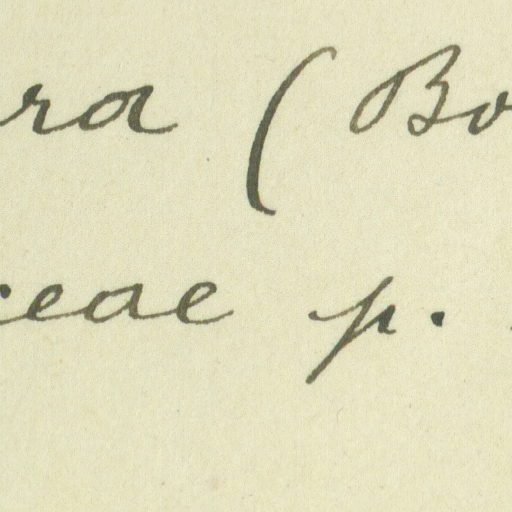 ra (Bo
ceae p.